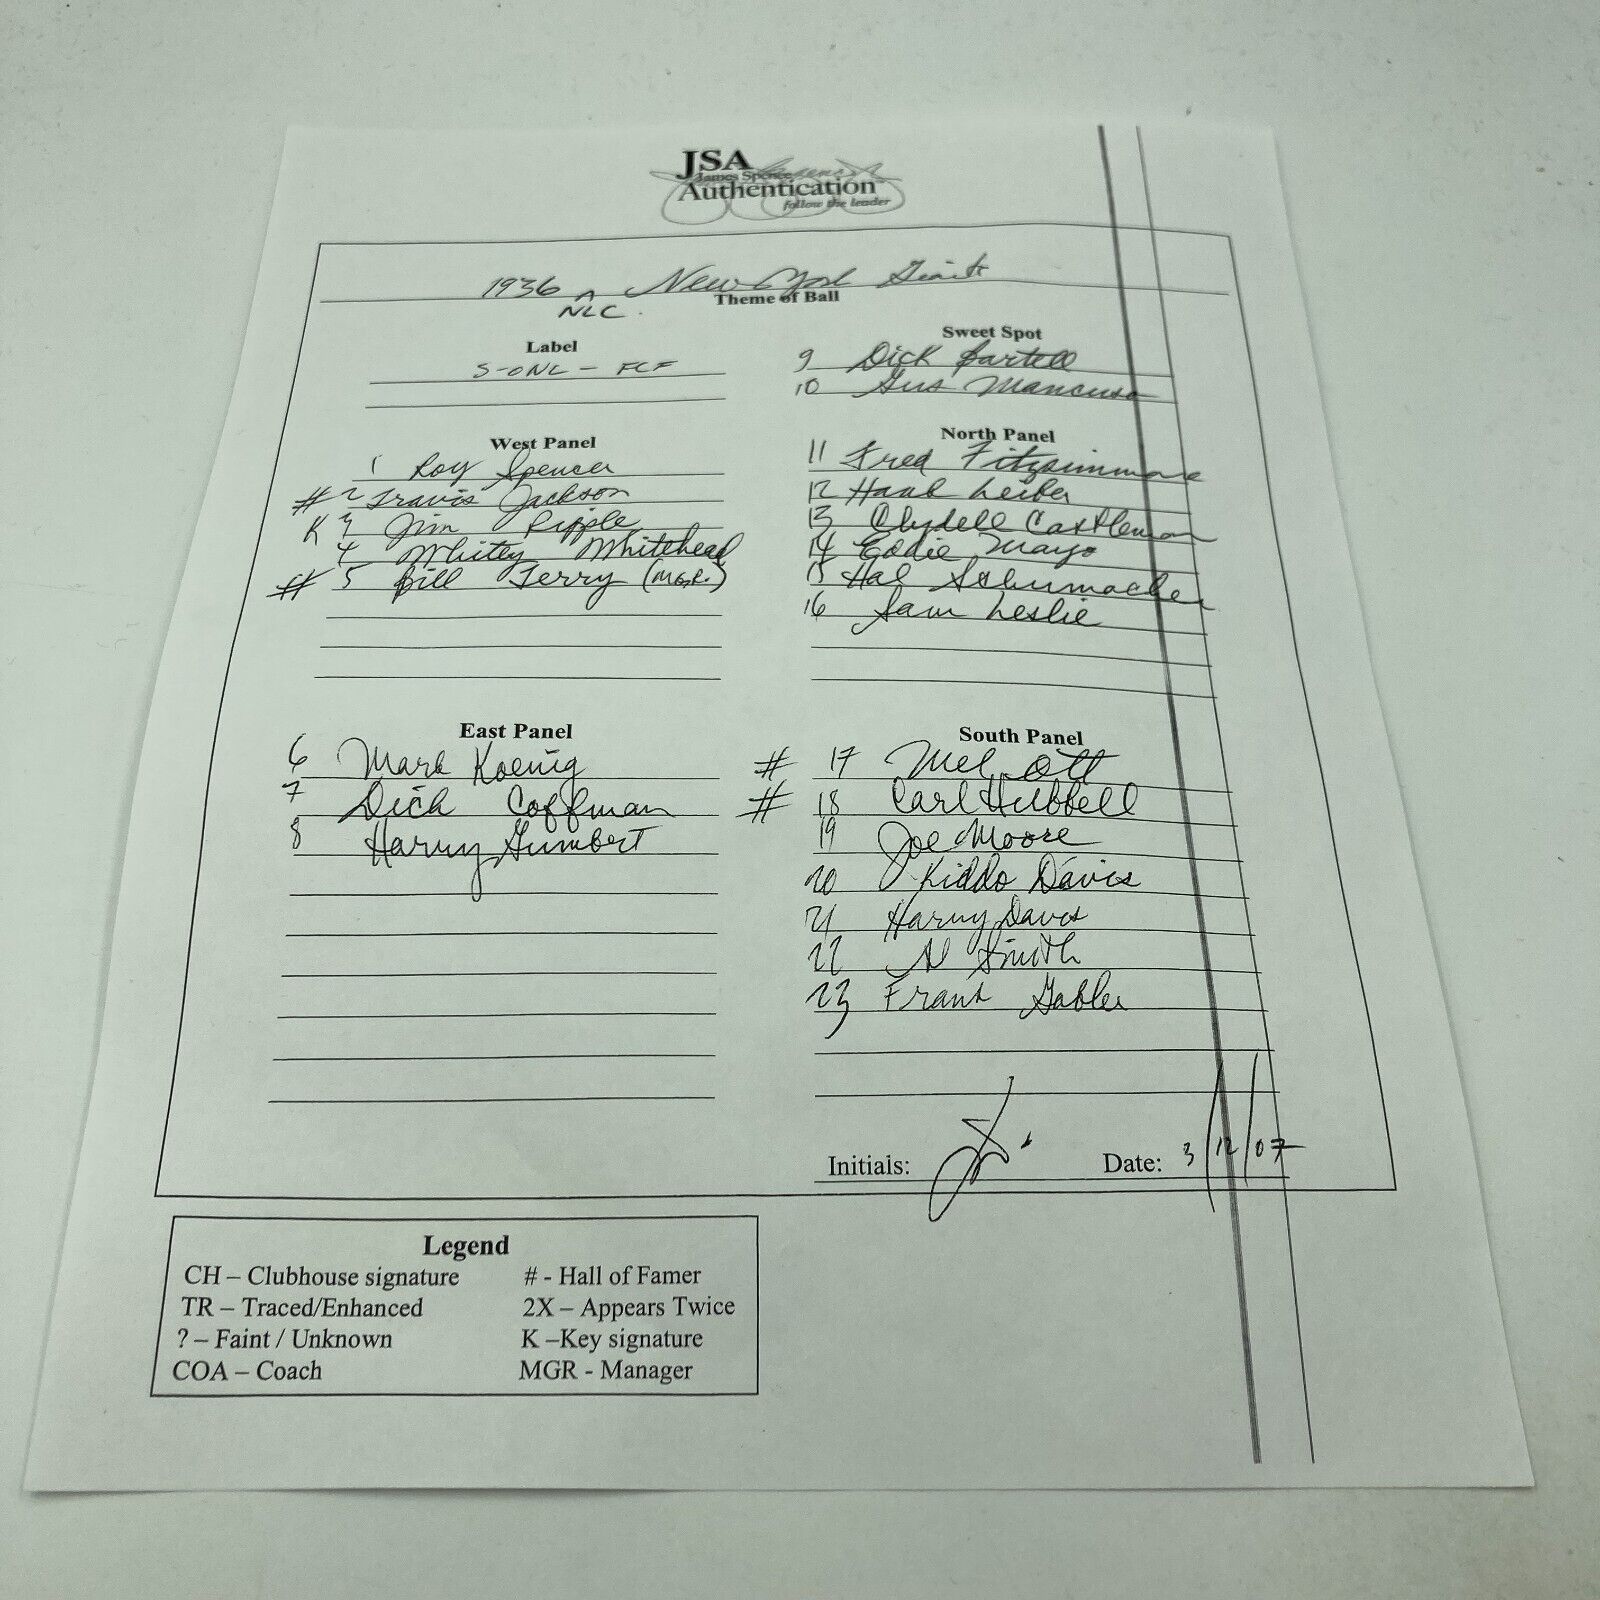 JSA
James Spence
Authentication
follow the leader
1936 ^ New York Giants
NLC.
Theme of Ball
Label
S-ONL - FCF
Sweet Spot
9 Dick Bartell
10 Gus Mancuso
West Panel
1 Roy Spencer
# 2 Travis Jackson
K 3 Jim Ripple
4 Whitey Whitehead
# 5 Bill Terry (MGR.)
North Panel
11 Fred Fitzsimmons
12 Hank Leiber
13 Clydell Castleman
14 Eddie Mayo
15 Hal Schumacher
16 Sam Leslie
East Panel
6 Mark Koenig
7 Dick Coffman
8 Harry Gumbert
South Panel
# 17 Mel Ott
# 18 Carl Hubbell
19 Joe Moore
20 Kiddo Davis
21 Harry Davis
22 Al Smith
23 Frank Gabler
Initials:
Date: 3/12/07
Legend
CH – Clubhouse signature
TR – Traced/Enhanced
? – Faint / Unknown
COA – Coach
# - Hall of Famer
2X – Appears Twice
K –Key signature
MGR - Manager